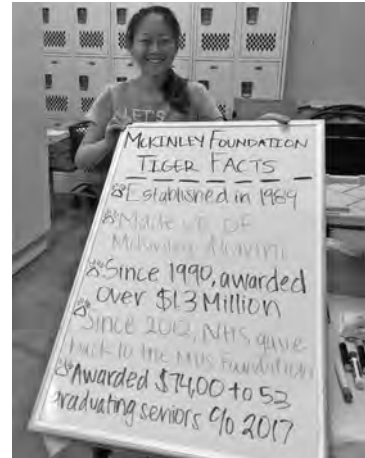 LET'S
MCKINLEY FOUNDATION
TIGER FACTS
Established in 1989
Made up OF
McKinley Alumni
Since 1990, awarded
over $1.3 Million
Since 2012, NHS gave
back to the MHS Foundation
Awarded $74,00 to 53
graduating seniors c/o 2017